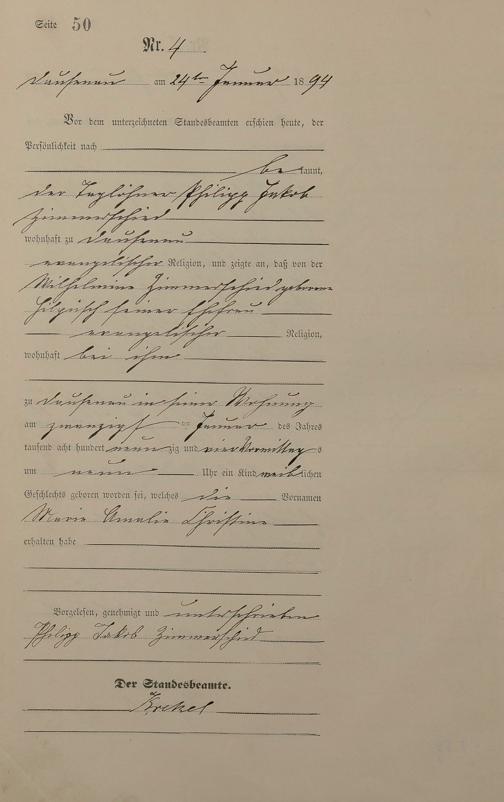 Seite 50
Nr. 4
Dausenau am 24ten Januar 1894
Vor dem unterzeichneten Standesbeamten erschien heute, der
Persönlichkeit nach
bekannt,
der Taglöhner Philipp Jakob
Zimmerschied
wohnhaft zu Dausenau
evangelischer Religion, und zeigte an, daß von der
Wilhelmine Zimmerschied geborene
Hilpüsch seiner Ehefrau
evangelischer Religion,
wohnhaft bei ihm
zu Dausenau in seiner Wohnung
am zwanzigst ten Januar des Jahres
tausend acht hundert neunzig und vier Vormittags
um neun Uhr ein Kind weiblichen
Geschlechts geboren worden sei, welches die Vornamen
Marie Amalie Christine
erhalten habe
Vorgelesen, genehmigt und unterschrieben
Philipp Jakob Zimmerschied
Der Standesbeamte.
Krekel